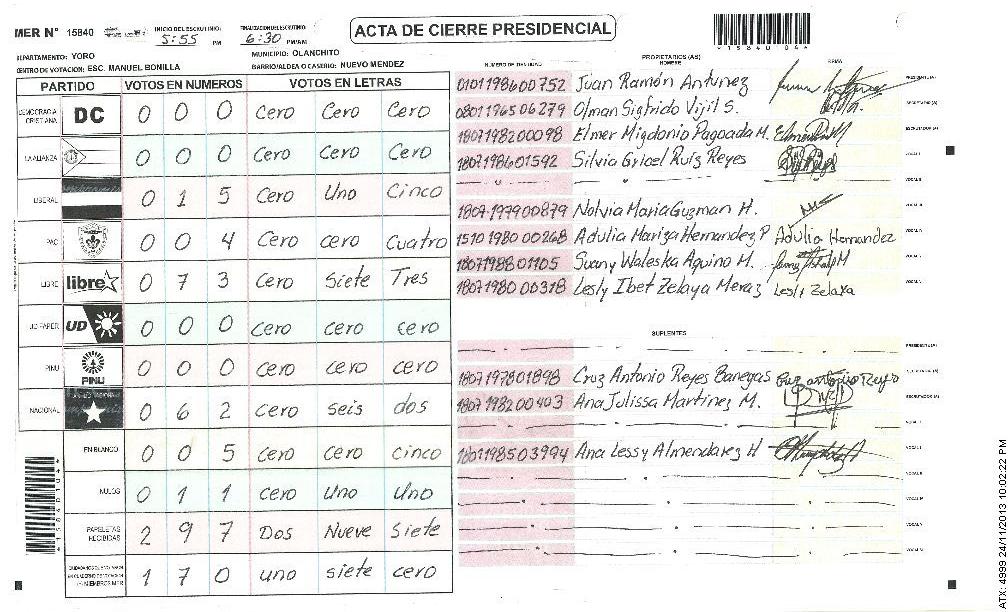 MER N° 15840
INICIO DEL ESCRUTINIO:
5:55 PM
FINALIZACION DEL ESCRUTINIO:
6:30 PM/AM
ACTA DE CIERRE PRESIDENCIAL
15840 04
DEPARTAMENTO: YORO
MUNICIPIO: OLANCHITO
CENTRO DE VOTACION: ESC. MANUEL BONILLA
BARRIO/ALDEA O CASERIO: NUEVO MENDEZ
PARTIDO VOTOS EN NUMEROS VOTOS EN LETRAS
DEMOCRACIA CRISTIANA DC 0 0 0 Cero Cero Cero
LA ALIANZA 0 0 0 Cero Cero Cero
LIBERAL 0 1 5 Cero Uno Cinco
PAC 0 0 4 Cero cero Cuatro
LIBRE libre 0 7 3 Cero Siete Tres
UD FAPER UD 0 0 0 Cero cero cero
PINU PINU 0 0 0 Cero cero cero
NACIONAL 0 6 2 cero seis dos
EN BLANCO 0 0 5 cero cero cinco
NULOS 0 1 1 cero Uno Uno
PAPELETAS RECIBIDAS 2 9 7 Dos Nueve Siete
1 7 0 uno siete cero
NUMERO DE IDENTIDAD
PROPIETARIOS (AS)
NOMBRE
FIRMA
0101198600752 Juan Ramón Antunez PRESIDENTE (A)
0801196506279 Olman Sigfrido Vijil S. SECRETARIO (A)
1807198200098 Elmer Migdonio Pagoada M. ESCRUTADOR (A)
1807198601592 Silvia Gricel Ruiz Reyes VOCAL I
1807197900879 Nolvia Maria Guzman H.
1510198000268 Adulia Mariza Hernandez P Adulia Hernandez
1807198801105 Suany Waleska Aquino M.
1807198000318 Lesly Ibet Zelaya Meraz Lesly Zelaya
SUPLENTES
PRESIDENTE (A)
1807197801898 Cruz Antonio Reyes Banegas Cruz antonio Reyes SECRETARIO (A)
1807198200403 Ana Julissa Martinez M. ESCRUTADOR (A)
1801198503994 Ana Lessy Almendarez H
ATX: 4999 24/11/2013 10:02:22 PM